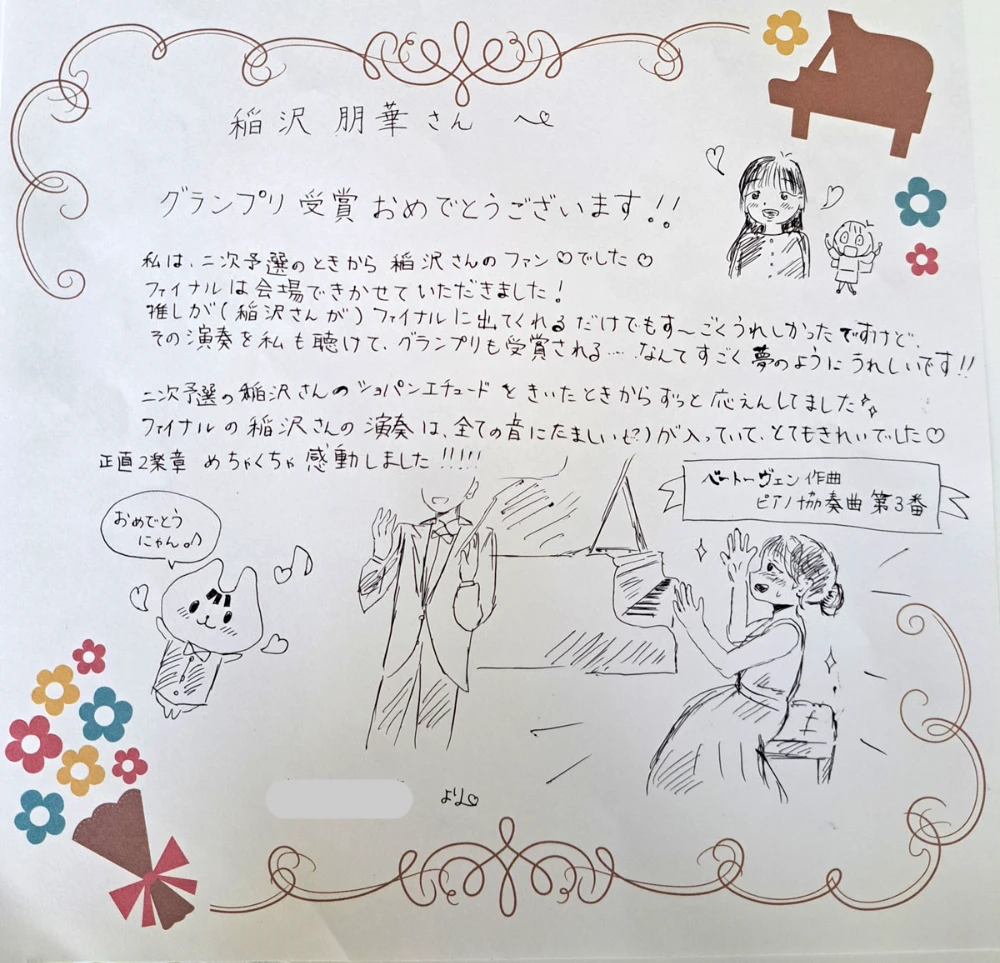 稲沢 朋華さん へ♡
グランプリ 受賞 おめでとうございます!!
私は、二次予選のときから 稲沢さんの ファン♡でした♡
ファイナルは会場できかせていただきました!
推しが(稲沢さんが)ファイナルに出てくれるだけでもす〜ごくうれしかったですけど、
その演奏を私も聴けて、グランプリも受賞される……なんてすごく夢のようにうれしいです!!
二次予選の稲沢さんのショパンエチュードをきいたときからずっと応えんしてました
ファイナルの稲沢さんの演奏は、全ての音にたましい(?)が入っていて、とてもきれいでした♡
正直2楽章 めちゃくちゃ感動しました!!!!!
ベートーヴェン作曲
ピアノ協奏曲 第3番
おめでとう
にゃん。♪
より♡